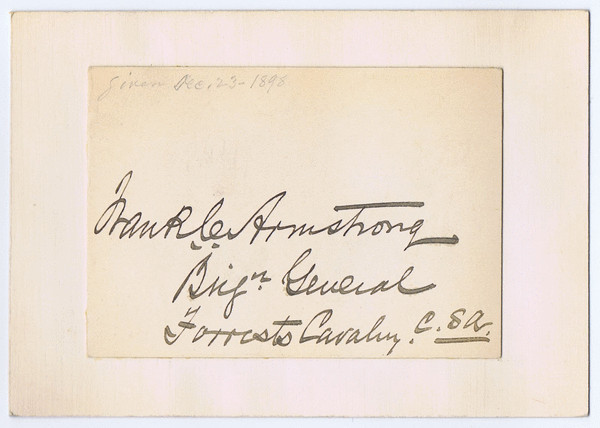 Given Dec. 23 - 1898
Frank C. Armstrong
Brign General
Forrests Cavalry. C.S.A.